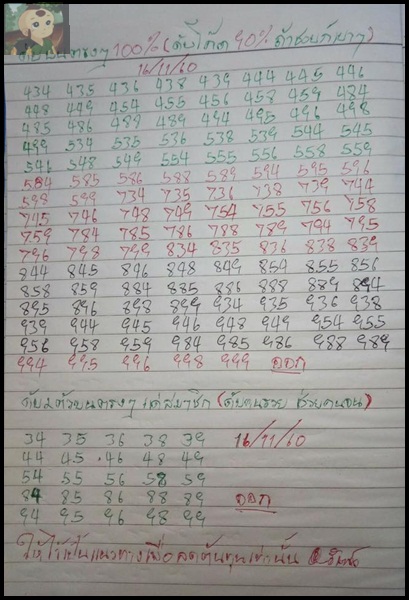 ดับบนตรงๆ 100% (ดับโต๊ด 90%
16/11/60
434 435 436 438 439 444 445 446
448 449 454 455 456 458 459 484
485 486 488 489 494 495 496 498
499 534 535 536 538 539 544 545
546 548 549 554 555 556 558 559
584 585 586 588 589 594 595 596
598 599 734 735 736 738 739 744
745 746 748 749 754 755 756 758
759 784 785 786 788 789 794 795
796 798 799 834 835 836 838 839
844 845 846 848 849 854 855 856
858 859 884 885 886 888 889 894
895 896 898 899 934 935 936 938
939 944 945 946 948 949 954 955
956 958 959 984 985 986 988 989
994 995 996 998 999 ออก
ดับ2ตัวบนตรงๆ แด่สมาชิก (ดับคนรวย ช่วยคนจน)
34 35 36 38 39 16/11/60
44 45 46 48 49
54 55 56 58 59
84 85 86 88 89 ออก
94 95 96 98 99
ให้ไว้เป็นแนวทางเพื่อลดต้นทุนเท่านั้น